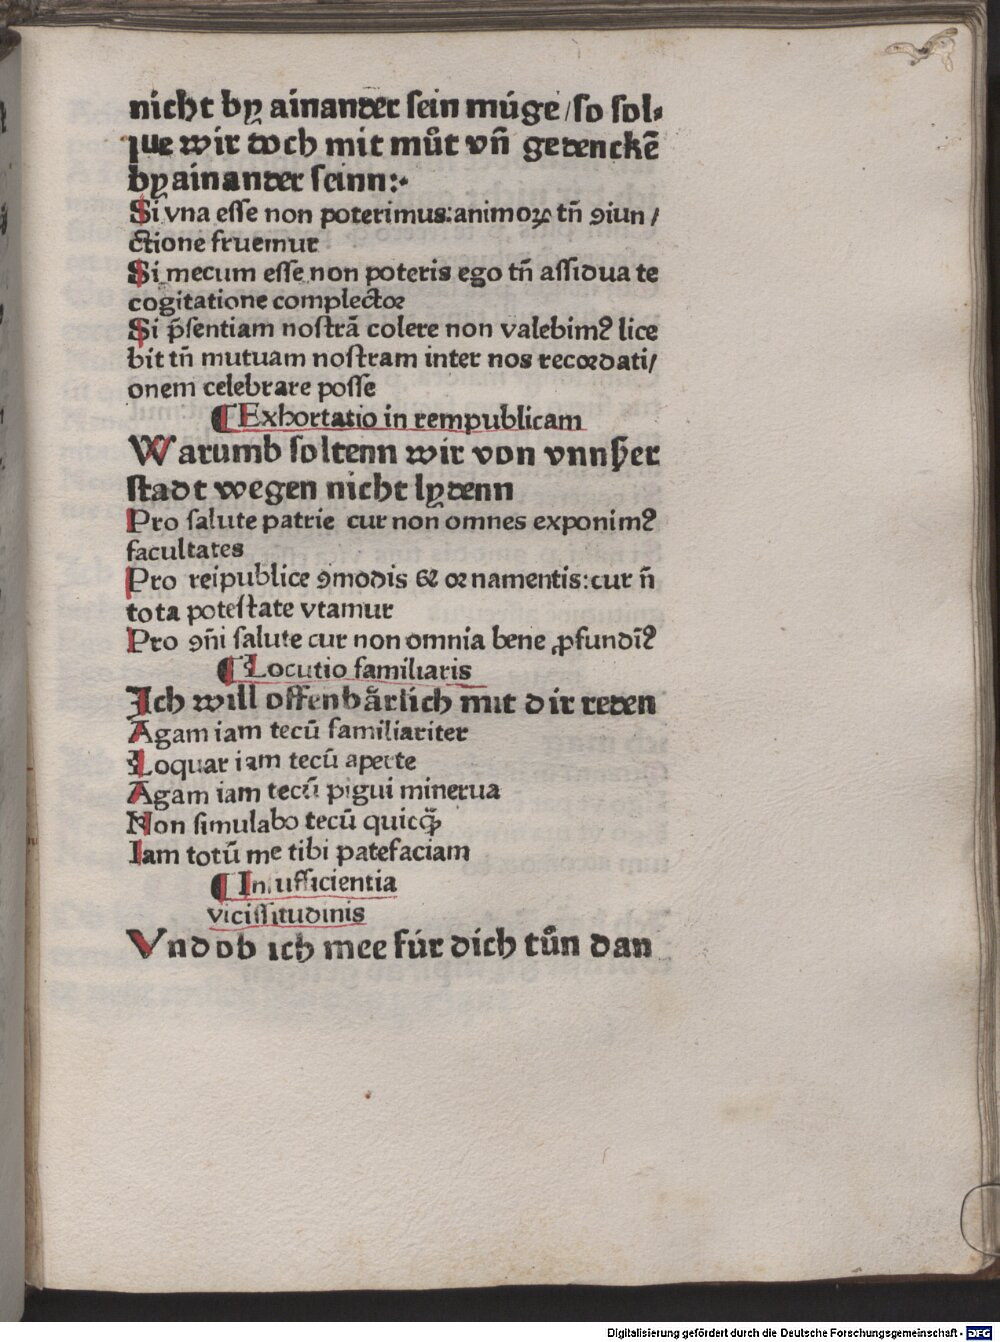 nicht by ainander sein múge/so sol⸗
lue wir doch mit můt vñ gedenckẽ
by ainander seinn:·
Si vna esse non poterimus:animoꝝ tñ ꝯiun/
ctione fruemur
Si mecum esse non poteris ego tñ assidua te
cogitatione complectoꝛ
Si p̃sentiam nostrã colere non valebimꝰ lice
bit tñ mutuam nostram inter nos recoꝛdati/
onem celebrare posse
¶ Exhortatio in rempublicam
Warumb soltenn wir von vnnßer
stadt wegen nicht lydenn
Pro salute patrie cur non omnes exponimꝰ
facultates
Pro reipublice ꝯmodis & oꝛnamentis:cur ñ
tota potestate vtamur
Pro ꝯñi salute cur non omnia bene ꝓfundĩꝰ
¶ Locutio familiaris
Ich will offenbårlich mit dir reden
Agam iam tecũ familiariter
Loquar iam tecũ aperte
Agam iam tecũ pigui minerua
Non simulabo tecũ quicꝙ̃
Iam totũ me tibi patefaciam
¶ Insufficientia
vicissitudinis
Vnd ob ich mee fúr dich tůn dan
Digitalisierung gefördert durch die Deutsche Forschungsgemeinschaft - DFG